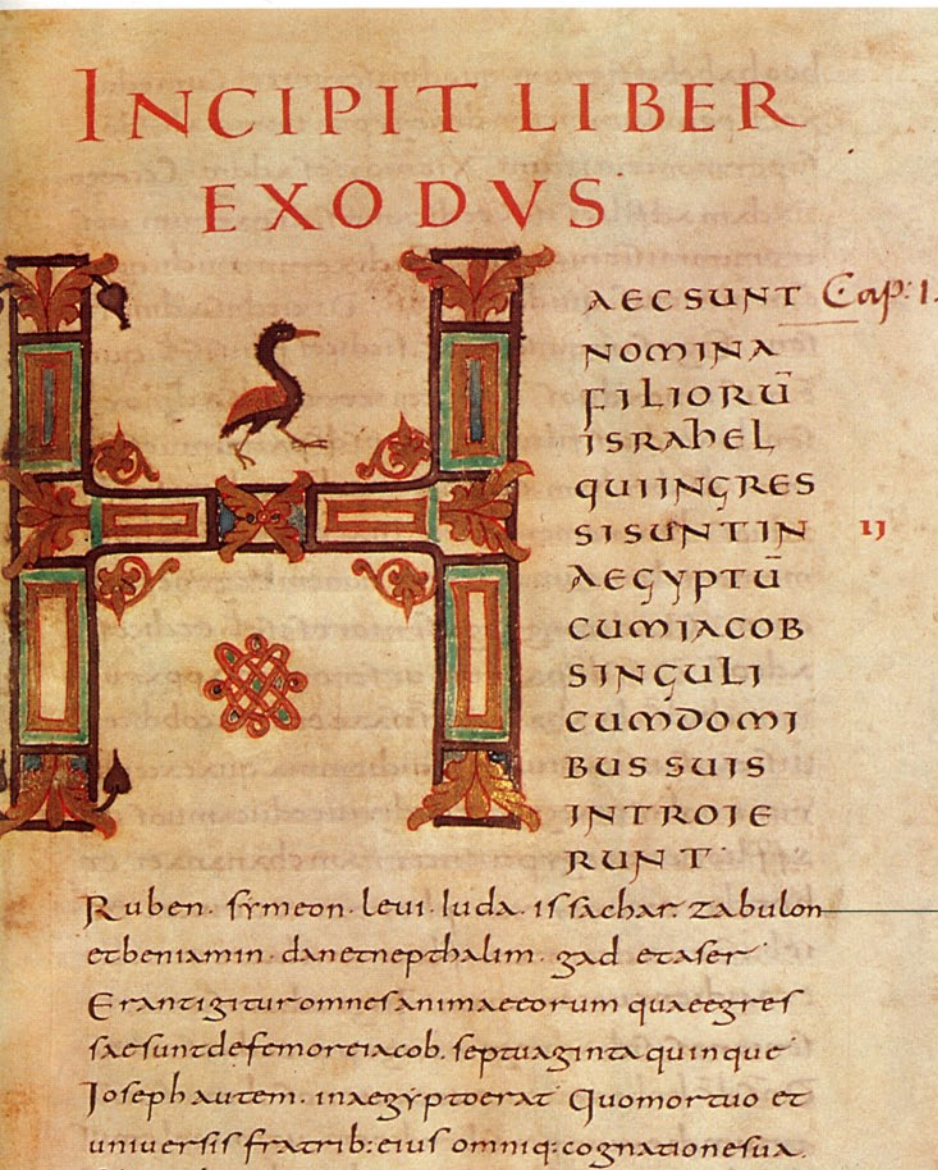 INCIPIT LIBER
EXODVS
H
AEC SUNT Cap: 1.
NOMINA
FILIORŪ
ISRAHEL
QUI INGRES
SI SUNT IN IJ
AEGYPTŪ
CUM IACOB
SINGULI
CUM DOMI
BUS SUIS
INTROIE
RUNT.
Ruben. symeon. levi. Iuda. issachar. zabulon
et beniamin. dan et nepthalim. gad et aser
Erant igitur omnes animae eorum quae egres
sae sunt de femore iacob. septuaginta quinque
Ioseph autem. in aegypto erat Quo mortuo et
universis fratrib: eius omniq: cognatione sua.